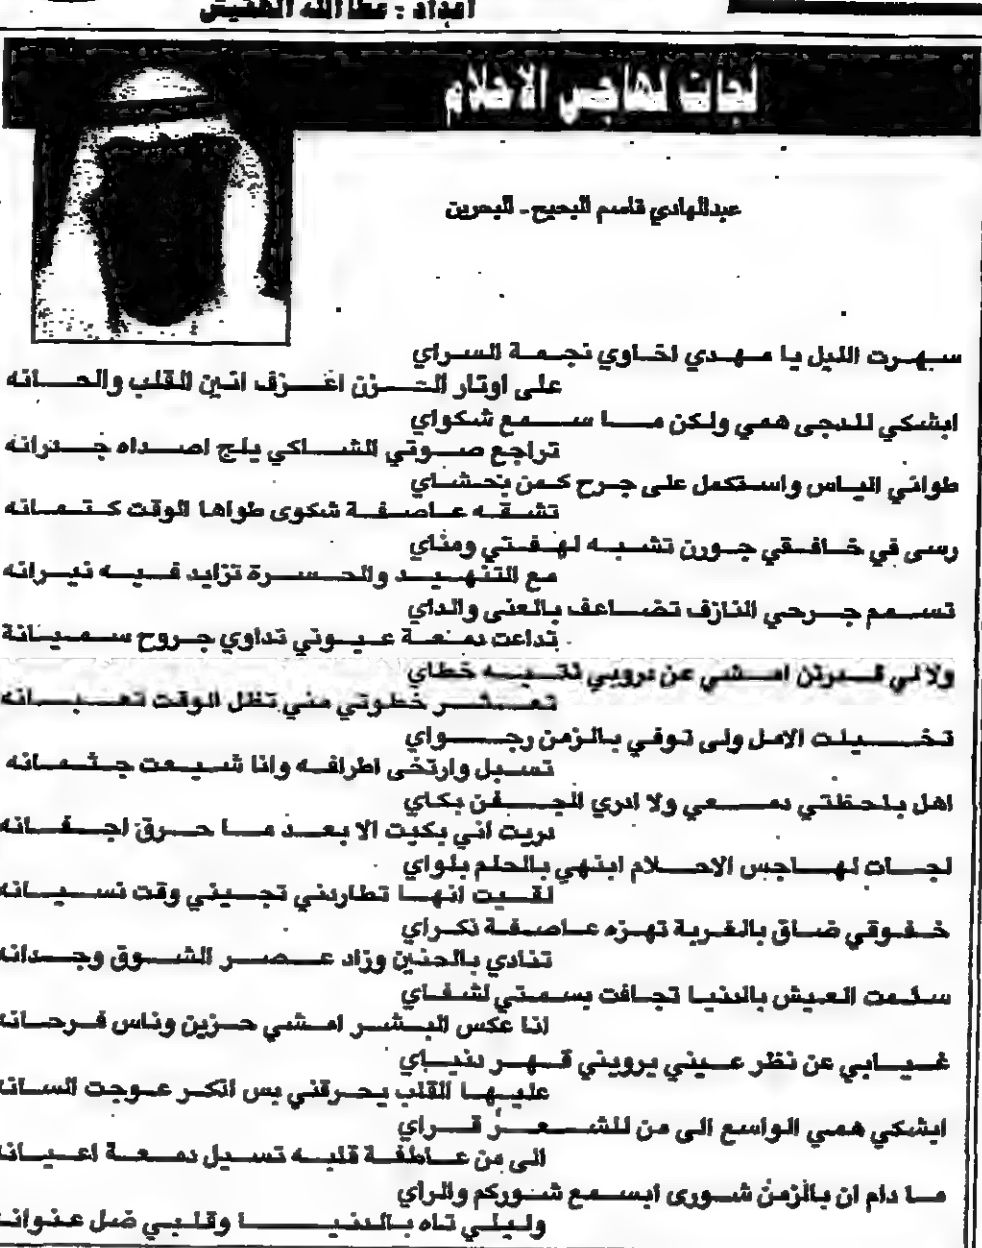 اعداد : عطاالله الهفيش
لجأت لهاجس الاحلام
عبدالهادي قاسم البحيح - البحرين
سهرت الليل يا مهدي اخاوي نجمة السراي
على اوتار الحزن اعزف انين القلب والحانه
ابشكي للدجى همي ولكن ما سمع شكواي
تراجع صوتي الشاكي يلج اصداه جدرانه
طواني الياس واستكمل على جرح كمن بحشاي
تشقه عاصفة شكوى طواها الوقت كتمانه
رسى في خافقي جورن تشبه لهفتي ومناي
مع التنهيد والحسرة تزايد فيه نيرانه
تسمم جرحي النازف تضاعف بالعنى والداي
تداعت دمعة عيوني تداوي جروح سميانة
ولا لي قدرتن امشي عن دروبي تتيه خطاي
تعثر خطوتي مني تظل الوقت تعبانه
تخيلت الامل ولى توفي بالزمن رجواي
تسبل وارتخى اطرافه وانا شيعت جثمانه
اهل بلحظتي دمعي ولا ادري الجفن بكاي
دريت اني بكيت الا بعد ما حرق اجفانه
لجات لهاجس الاحلام ابنهي بالحلم بلواي
لقيت انها تطاردني تجيني وقت نسيانه
خفوقي ضاق بالغربة تهزه عاصفة ذكراي
تنادي بالحنين وزاد عصر الشوق وجدانه
سئمت العيش بالدنيا تجافت بسمتي لشفاي
انا عكس البشر امشي حزين وناس فرحانه
غيابي عن نظر عيني يرويني قهر دنياي
عليها القلب يحرقني بس انكر عوجت السانه
ابشكي همي الواسع الى من للشعر قراي
الى من عاطفة قلبه تسيل دمعة اعيانه
ما دام ان بالزمن شورى ابسمع شوركم والراي
وليلي تاه بالدنيا وقلبي ضل عنوانه